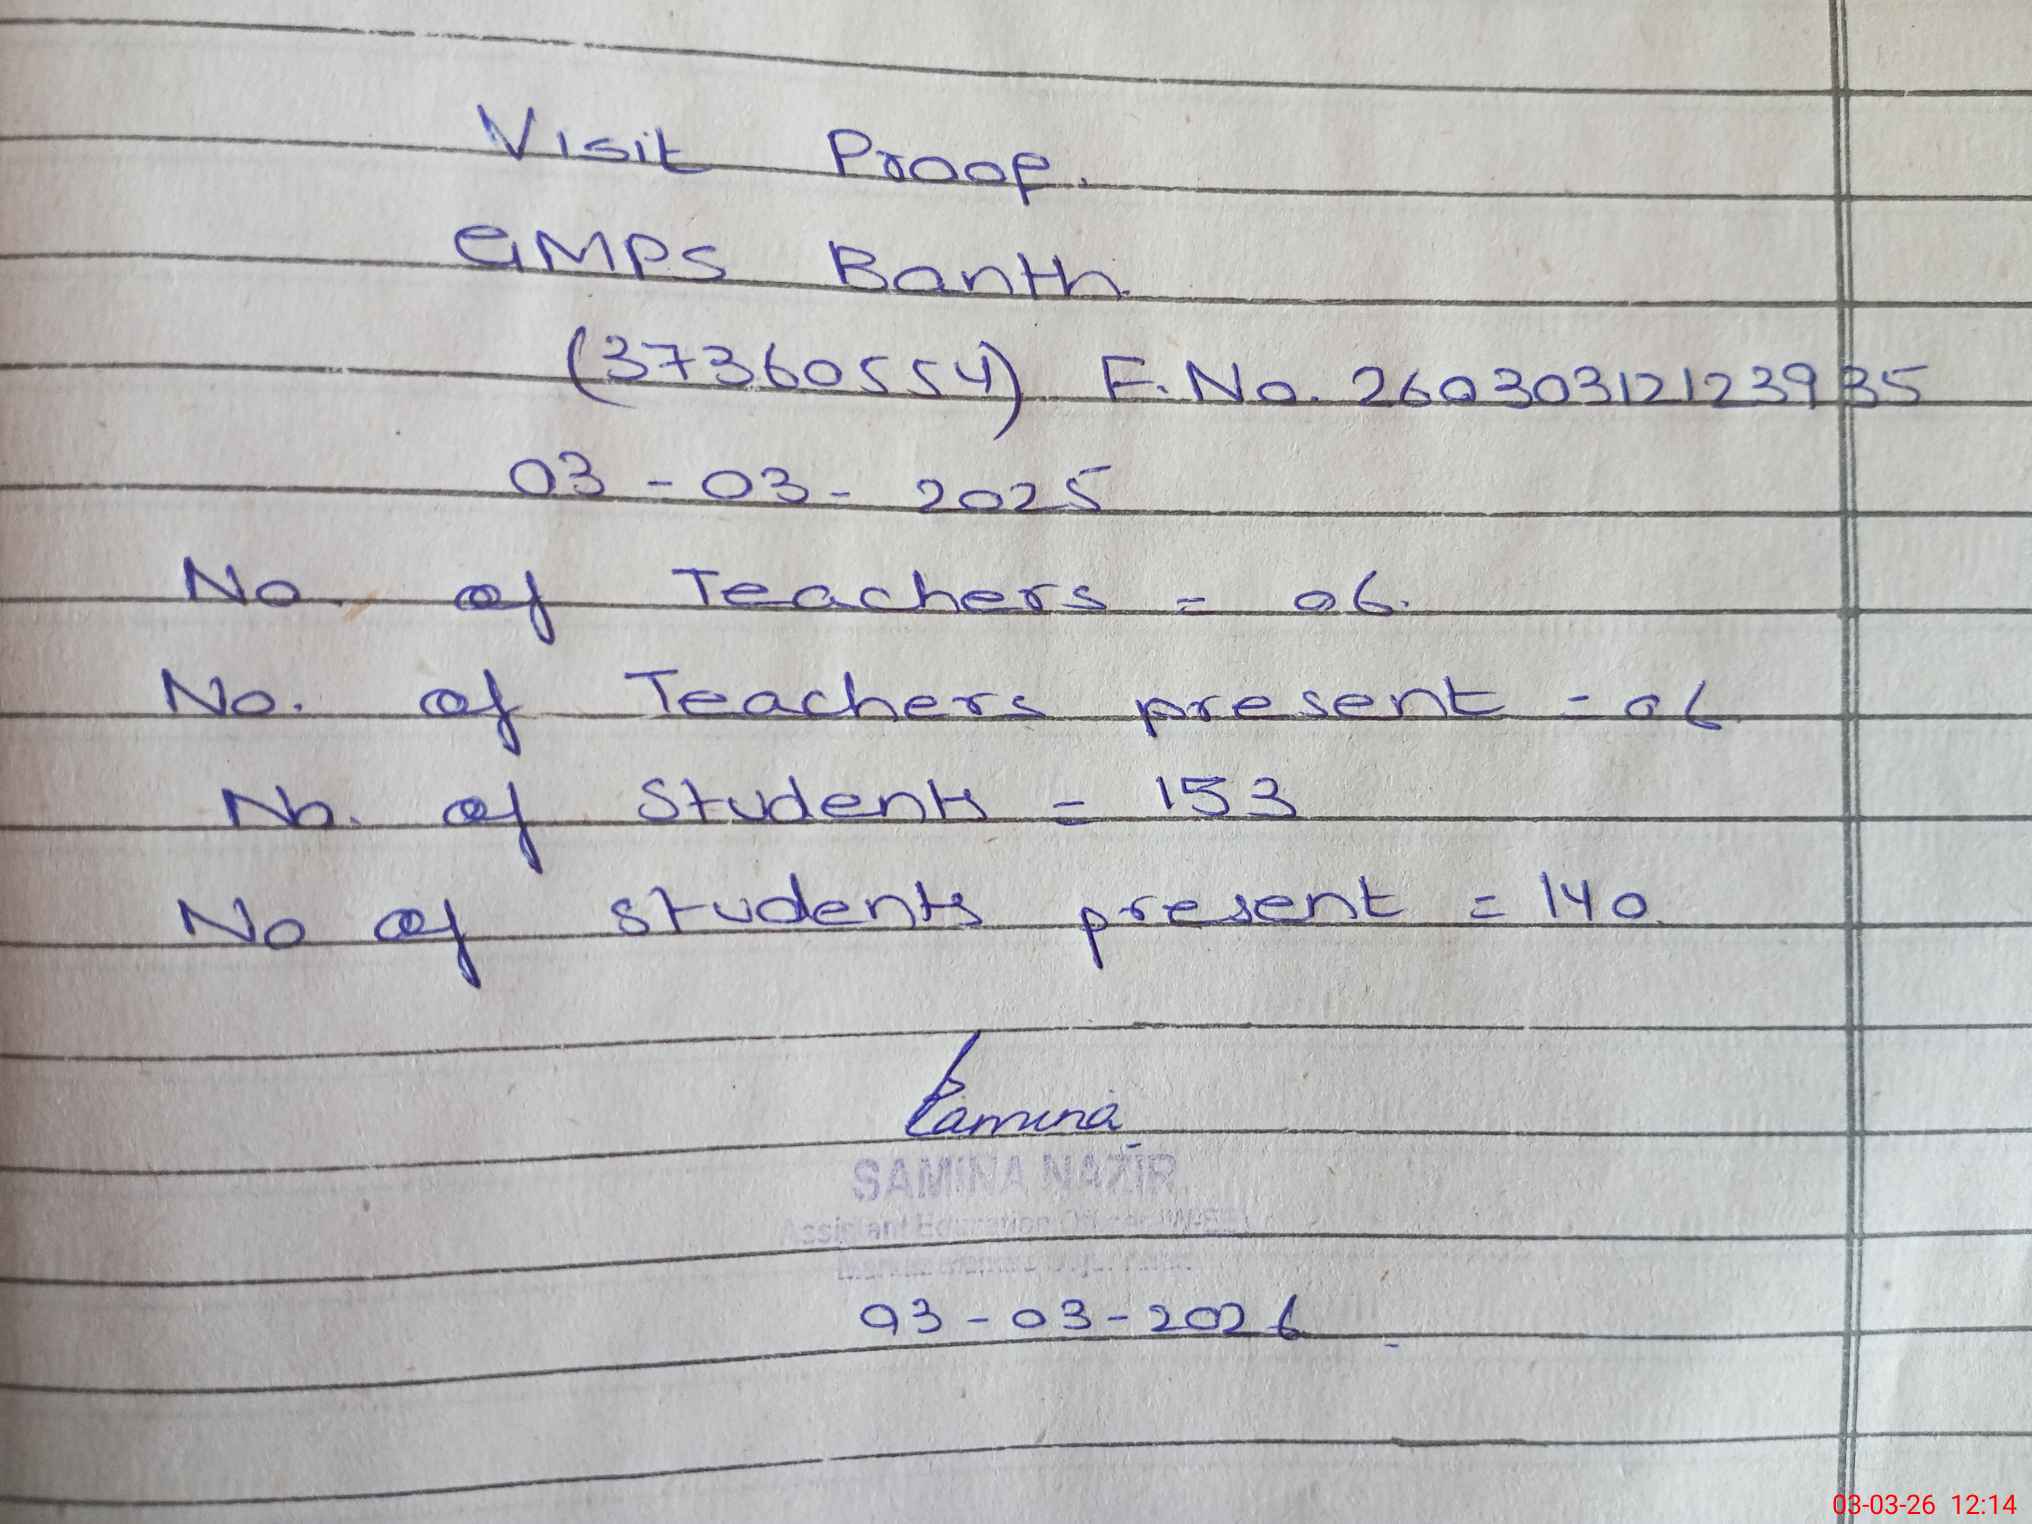 Visit Proof.
GMPS Banth.
(37360554) F.No. 26030312123935
03-03-2025
No. of Teachers = 06.
No. of Teachers present = 06
No. of Students = 153
No of students present = 140
Samina
SAMINA NAZIR
Assistant Education Officer (W-EE)
03-03-2026
03-03-26 12:14